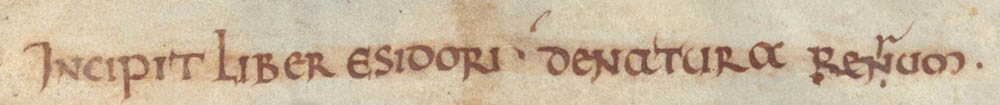 INCIPIT LIBER ESIDORI · DENATURA RERUM ·